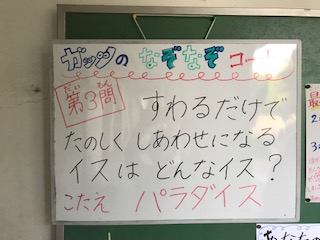 ガッツの なぞなぞ コーナー
第3問 すわるだけで
だい もん
たのしく しあわせになる
イスは どんなイス？
こたえ パラダイス